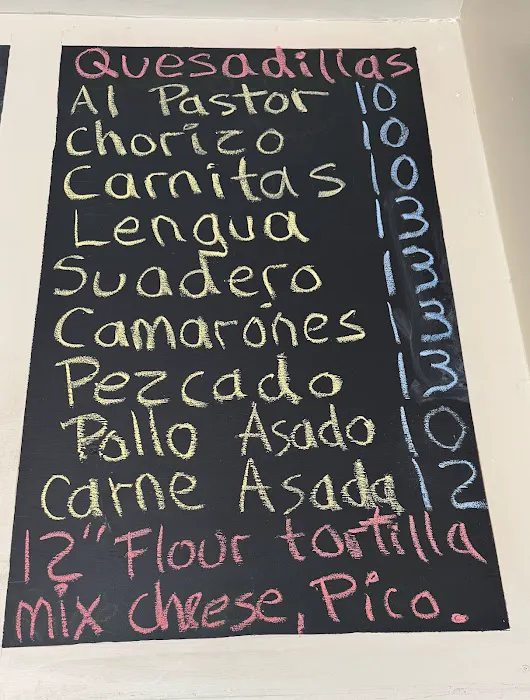 Quesadillas
Al Pastor 10
Chorizo 10
Carnitas 10
Lengua 13
Suadero 13
Camarónes 13
Pezcado 13
Pollo Asado 10
Carne Asada 12
12" Flour tortilla
mix cheese, Pico.